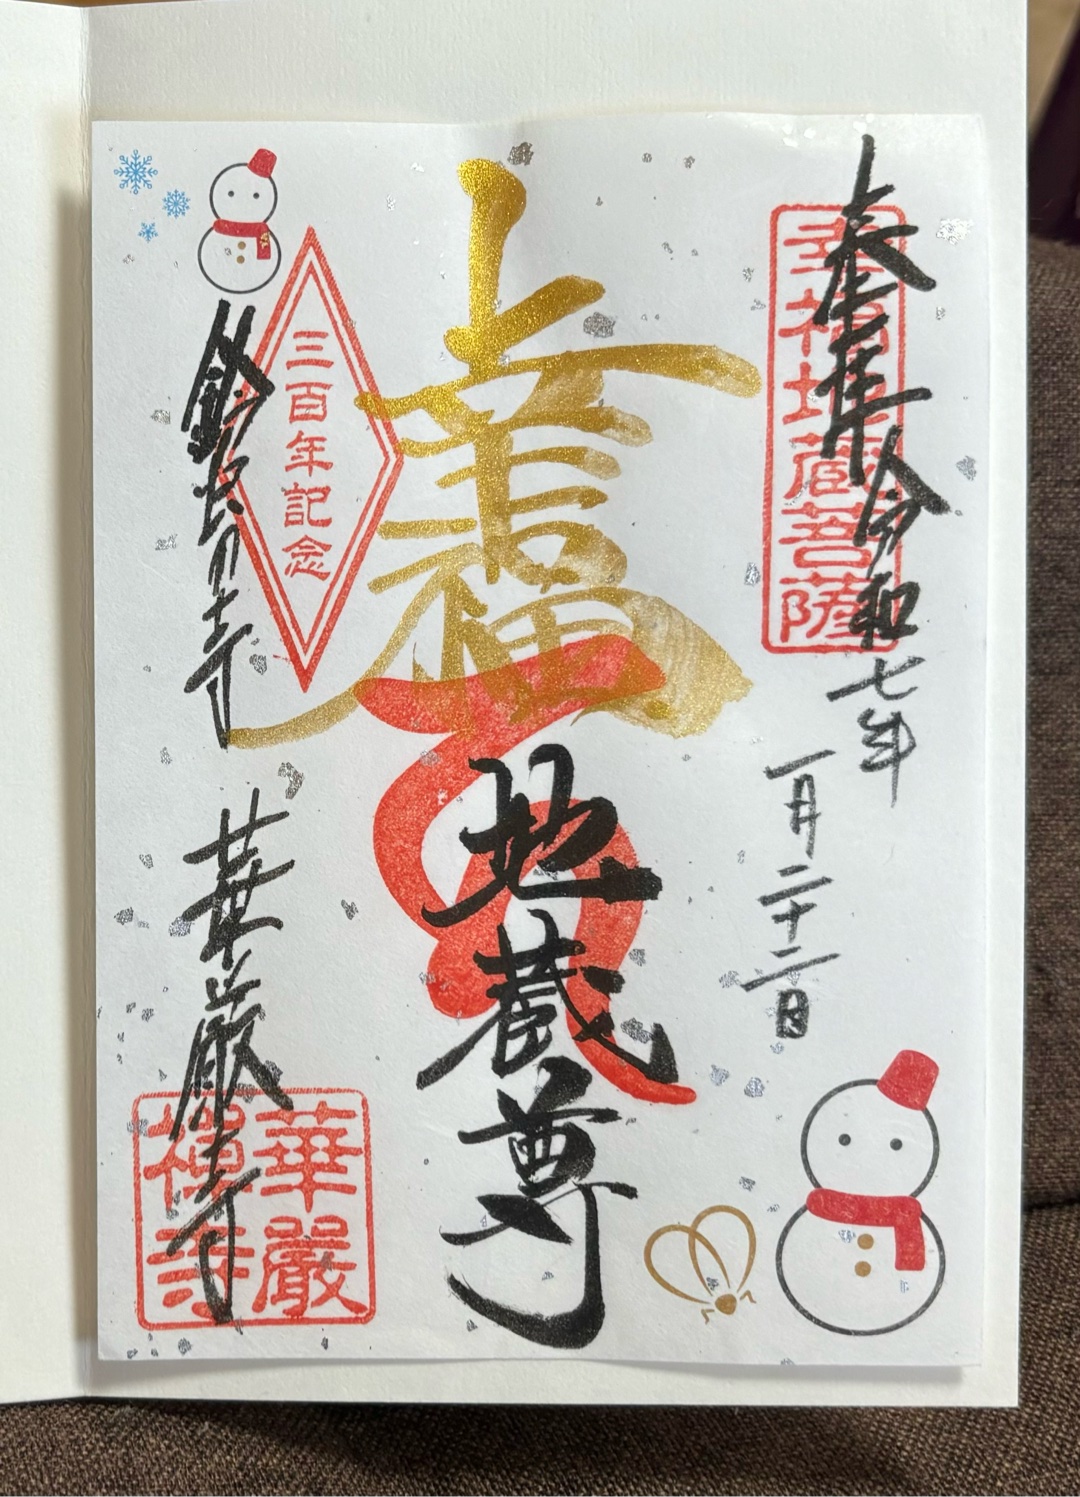 奉拝 令和七年
一月二十二日
幸福地蔵菩薩
幸福
地蔵尊
三百年記念
鈴虫の寺
華厳寺
華嚴禪寺